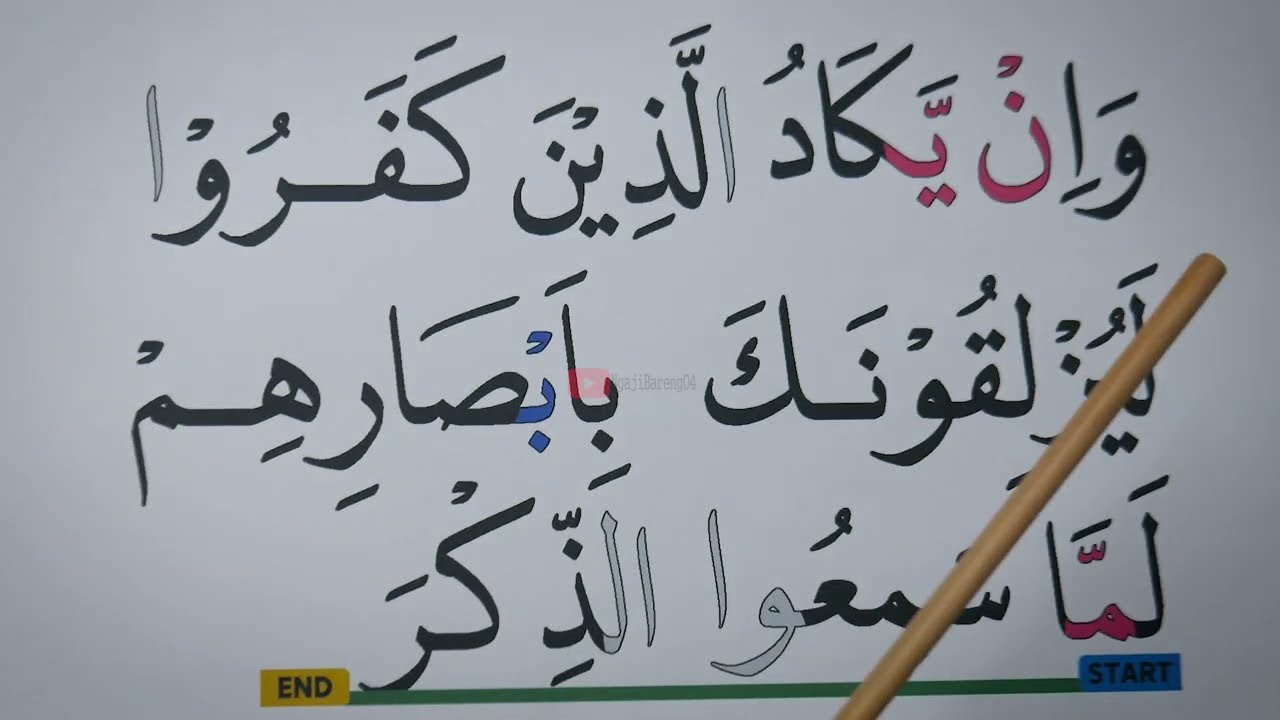 وَاِنْ يَّكَادُ الَّذِيْنَ كَفَرُوْا
لَيُزْلِقُوْنَكَ بِاَبْصَارِهِمْ
NgajiBareng04
لَمَّا سَمِعُوا الذِّكْرَ
END START